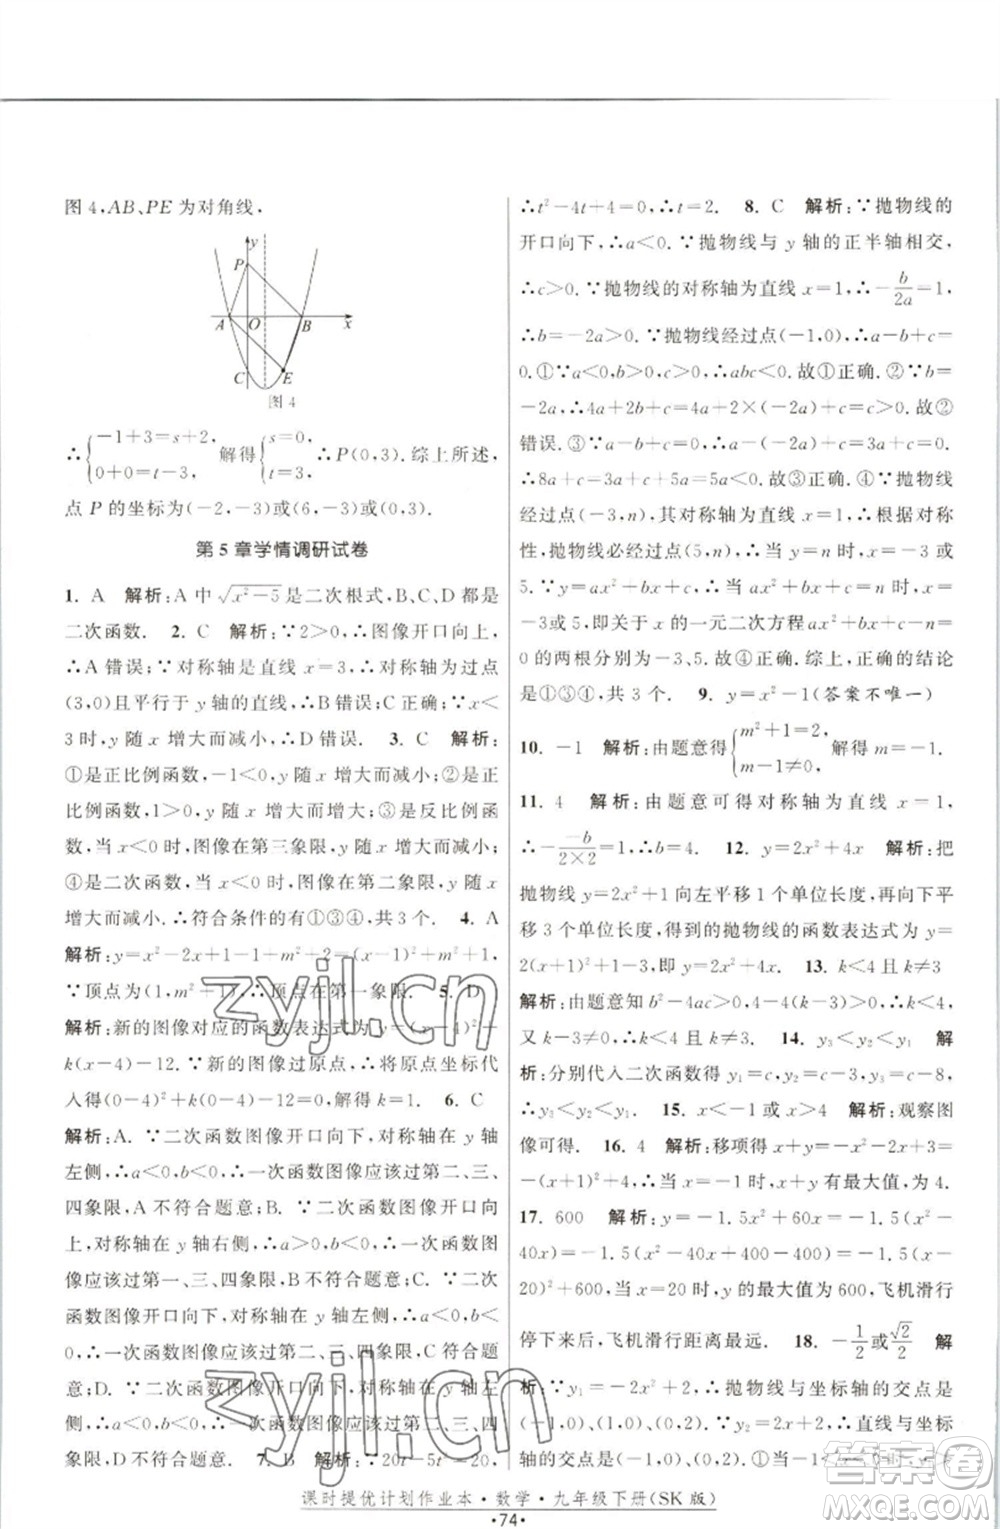 图 4, AB、PE 为对角线.
y
P
A
O
B
x
C
E
图 4
∴{-1+3=s+2, 0+0=t-3, 解得{s=0, t=3, ∴P(0,3). 综上所述,
点 P 的坐标为(-2,-3)或(6,-3)或(0,3).
第 5 章学情调研试卷
1. A 解析:A 中 √(x²-5) 是二次根式,B、C、D 都是
二次函数. 2. C 解析:∵2>0,∴图像开口向上,
∴A 错误;∵对称轴是直线 x=3,∴对称轴为过点
(3,0)且平行于 y 轴的直线,∴B 错误,C 正确;x<
3 时,y 随 x 增大而减小,∴D 错误. 3. C 解析:
①是正比例函数,-1<0,y 随 x 增大而减小;②是正
比例函数,1>0,y 随 x 增大而增大;③是反比例函
数,当 x>0 时,图像在第一象限,y 随 x 增大而减小;
④是二次函数,当 x<0 时,图像在第二象限,y 随 x
增大而减小.∴符合条件的有①③④,共 3 个. 4. A
解析:y=x²-2x+1-1+m²+2=(x-1)²+m²+1,
∵顶点为(1,m²+1),∴顶点在第一象限. 5. D
解析:新的图像对应的函数表达式为 y=(x-4)²+
k(x-4)-12.∵新的图像过原点,∴将原点坐标代
入得(0-4)²+k(0-4)-12=0,解得 k=1. 6. C
解析:A.∵二次函数图像开口向上,对称轴在 y 轴
左侧,∴a>0,b>0,∴一次函数图像应该过第一、二、三
四象限,A 不符合题意;B.∵二次函数图像开口向
上,对称轴在 y 轴右侧,∴a>0,b<0,∴一次函数图
像应该过第一、三、四象限,B 不符合题意;C.∵二次
函数图像开口向下,对称轴在 y 轴左侧,∴a<0,b<
0,∴一次函数图像应该过第二、三、四象限,C 符合题
意;D.∵二次函数图像开口向下,对称轴在 y 轴左
侧,∴a<0,b<0,∴一次函数图像应该过第二、三、四
象限,D 不符合题意. 7. B 解析:∵20t-5t²=20,
∴t²-4t+4=0,∴t=2. 8. C 解析:∵抛物线的
开口向下,∴a<0.∵抛物线与 y 轴的正半轴相交,
∴c>0.∵抛物线的对称轴为直线 x=1,∴-b/2a=1,
∴b=-2a>0.∵抛物线经过点(-1,0),∴a-b+c=
0.①∵a<0,b>0,c>0,∴abc<0.故①正确.②∵b=
-2a,∴4a+2b+c=4a+2×(-2a)+c=c>0.故②
错误.③∵a-b+c=a-(-2a)+c=3a+c=0,∴
∴8a+c=3a+c+5a=5a<0.故③正确.④∵抛物线
经过点(-3,n),其对称轴为直线 x=1,∴根据对称性,
抛物线必经过点(5,n),∴当 y=n 时,x=-3 或
5.∵y=ax²+bx+c(a≠0),∴当 y=n 时,x=
-3或5,即关于 x 的一元二次方程 ax²+bx+c=n
的两根分别为-3,5.故④正确.综上,正确的结论
是①③④,共 3 个. 9. y=x²-1(答案不唯一)
10. -1 解析:由题意得{m²+1=2, m-1≠0, 解得 m=-1.
11. 4 解析:由题意可得对称轴为直线 x=1,
∴-(-b)/(2×2)=1,∴b=4. 12. y=2x²+4x 解析:把
抛物线 y=2x²+1 向左平移 1 个单位长度,再向下平
移 3 个单位长度,得到的抛物线的函数表达式为 y=
2(x+1)²+1-3,即 y=2x²+4x. 13. k<4 且 k≠3
解析:由题意知 b²-4ac>0,∴k<4,
又 k-3≠0,∴k<4 且 k≠3. 14. y₃<y₂<y₁ 解
析:分别代入二次函数得 y₁=c, y₃=c-8,
∴y₃<y₂<y₁. 15. x<-1 或 x>3 解析:观察图
像可得. 16. 4 解析:移项得 x+y=-x²-2x+3=
-(x+1)²+4,∴当 x=-1 时,x+y 有最大值,为 4.
17. 600 解析:y=-1.5x²+60x=-1.5(x²
-40x)=-1.5(x²-40x+400-400)=-1.5(x-
20)²+600,∴当 x=20 时,y 的最大值为 600,飞机滑行
停下来后,飞机滑行距离最远. 18. -1/2或√2/2 解
析:∵ ∴抛物线与坐标轴的交点是
(-1,0),(1,0),(0,-1).∵y₂=2x+2,∴直线与坐标
轴的交点为(-1,0),(0,2).
zyjl.cn
zyjl.cn
答案圈
MXQE.COM
课时提优计划作业本·数学·九年级下册(SK 版)
·74·